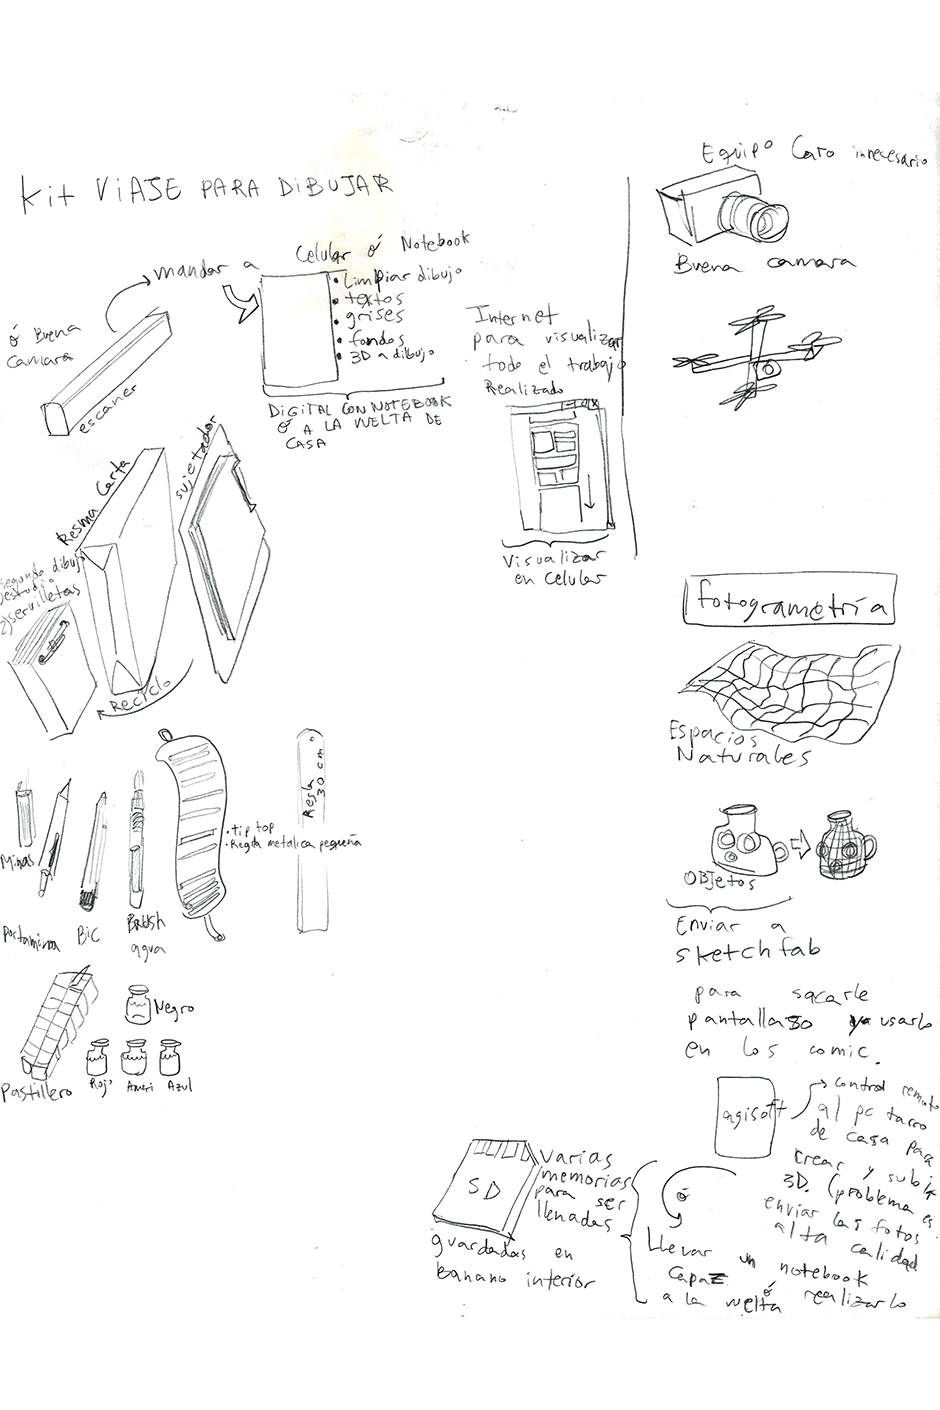 Kit VIAJE PARA DIBUJAR
mandar a
Celular ó Notebook
• limpiar dibujo
• textos
• grises
• fondos
• 3D a dibujo
ó Buena
camara
escaner
DIGITAL CON NOTEBOOK
ó A LA VUELTA DE
CASA
Internet
para visualizar
todo el trabajo
Realizado
Visualizar
en Celular
Resma Carta
sujetador
segundo dibujo
servilletas
Reciclo
Minas
Portamina
BiC
Brush
agua
• tip top
• Regla metalica pequeña
Regla
30 cm
Pastillero
Negro
Rojo
Amari
Azul
Equipo Caro innecesario
Buena camara
fotogrametría
Espacios
Naturales
OBJetos
Enviar a
sketchfab
para sacarle
pantallazo ya usarlo
en los comic.
agisoft
control remoto
al pc tarro
de casa para
crear y subir
3D. (problema es
enviar las fotos
alta calidad
SD
varias
memorias
para ser
llenadas
guardadas en
Banano interior
ó
Llevar un notebook
capaz ó realizarlo
a la vuelta